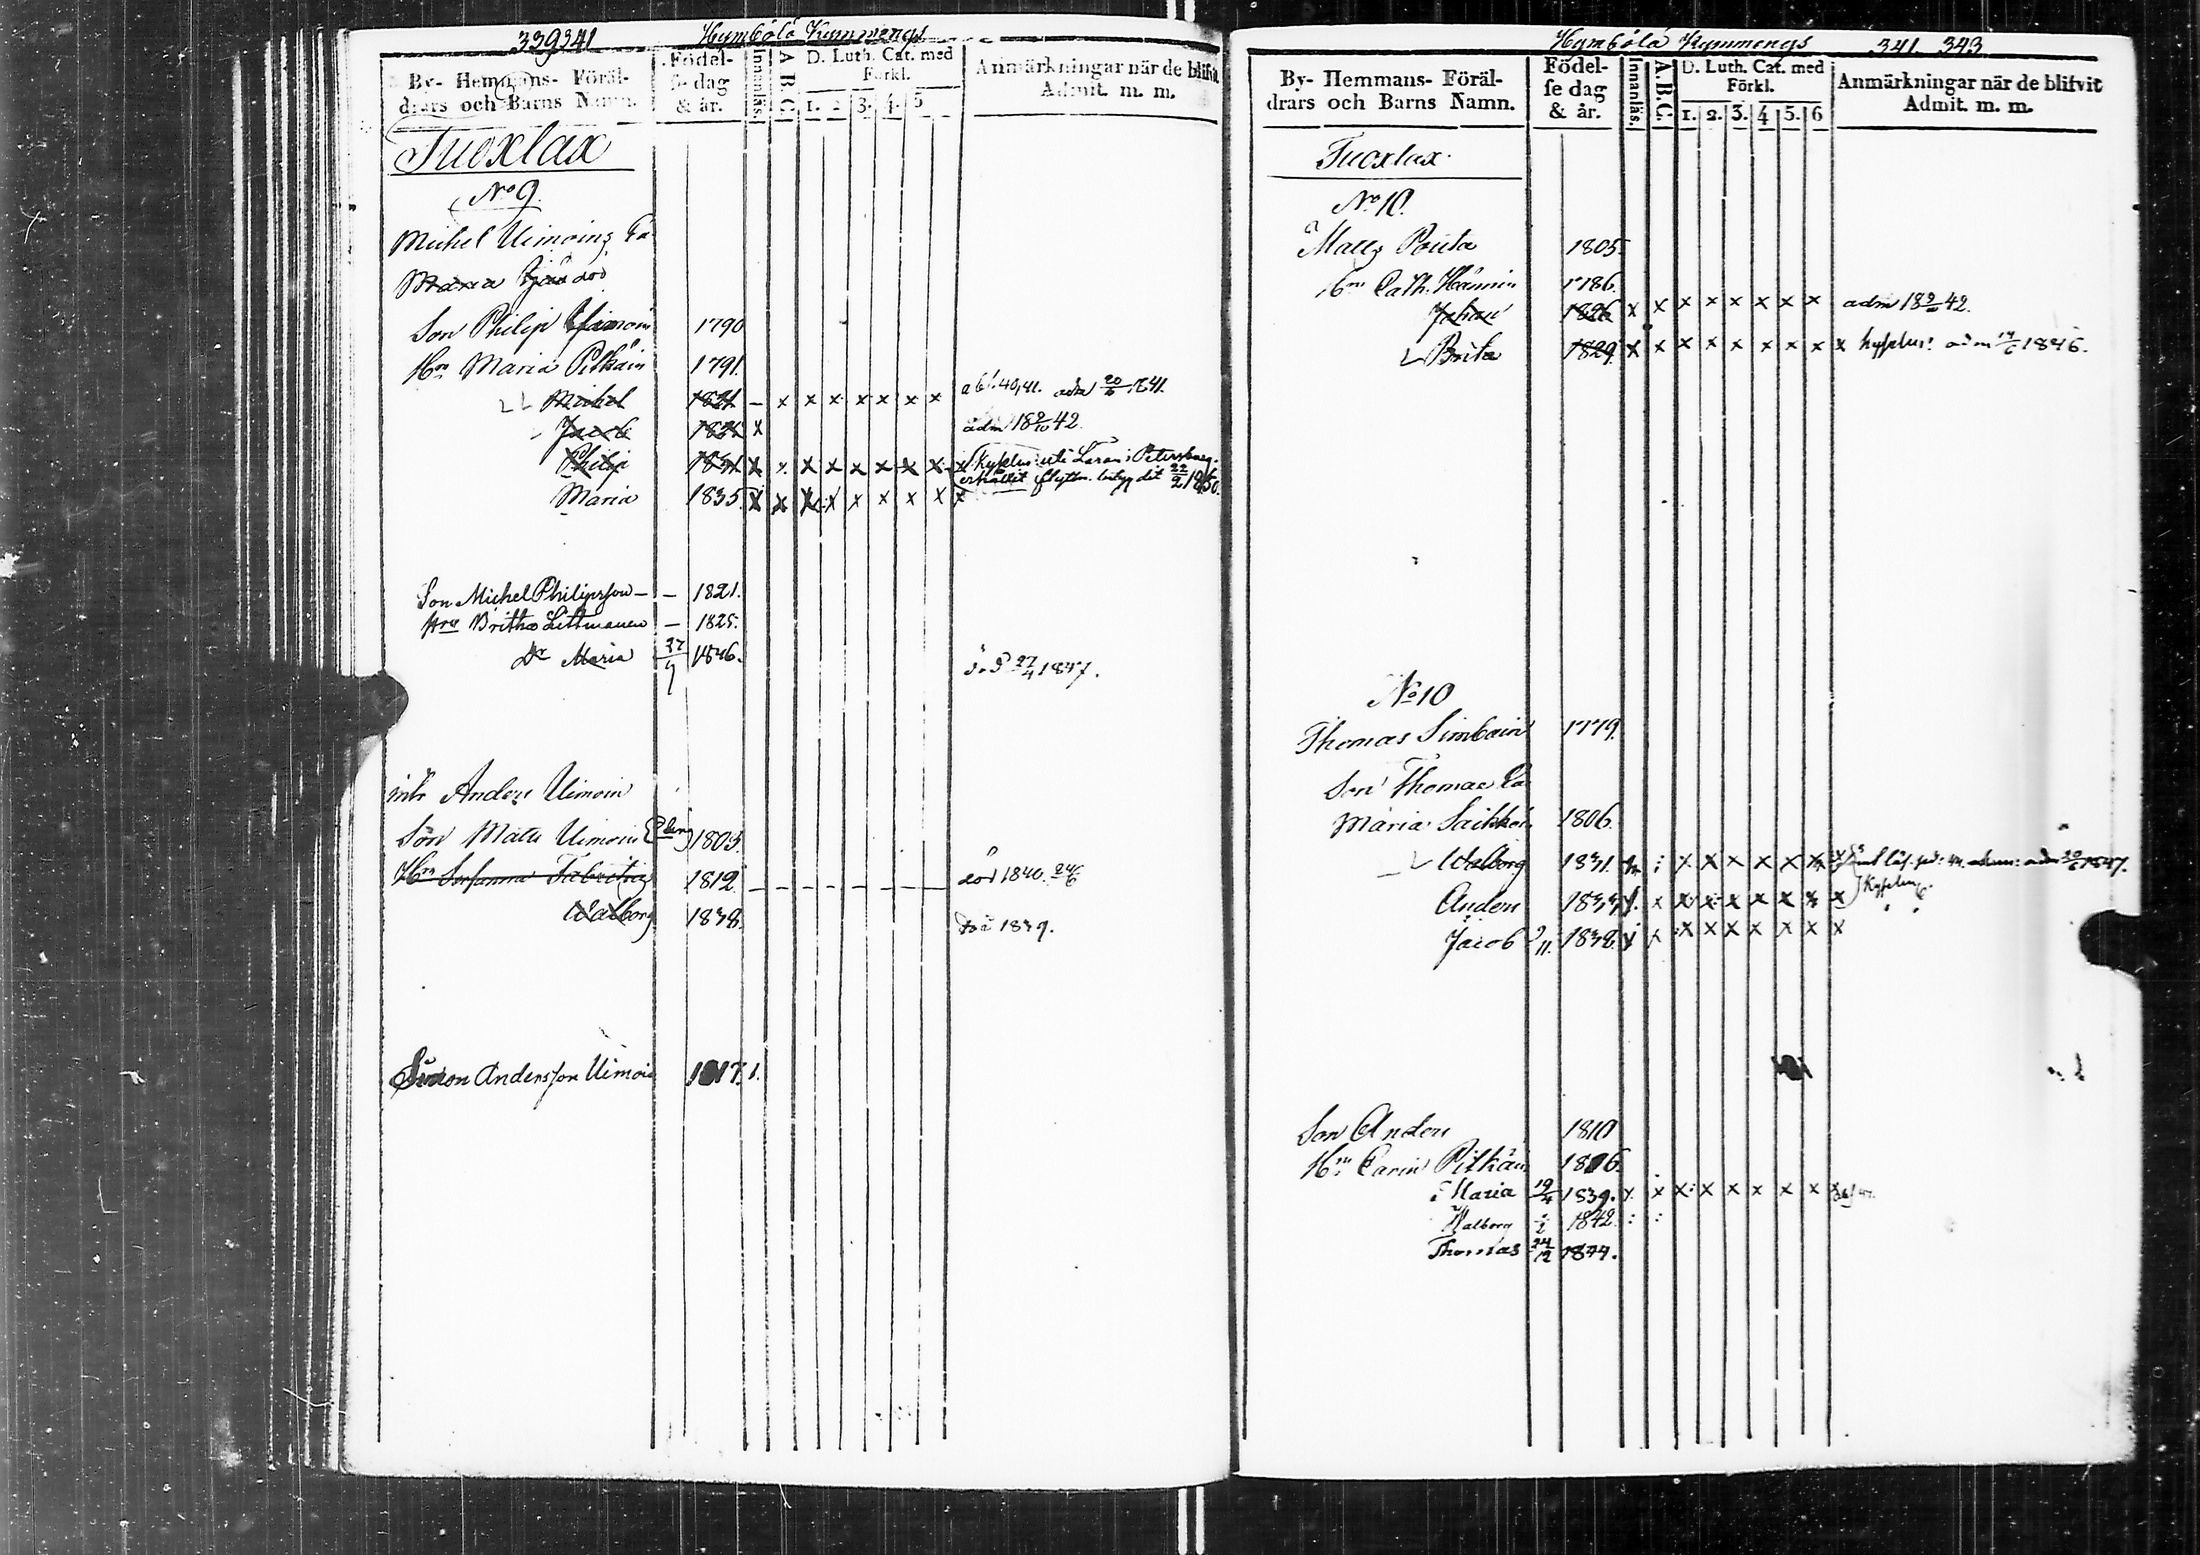 339 341 Hymbölä Kymmengs
By- Hemmans- Föräl-
drars och Barns Namn.
Födel-
se dag
& år.
Innanläs.
A B C
D. Luth. Cat. med
Förkl.
1. 2 3. 4. 5
Anmärkningar när de blifvit
Admit. m. m.
Tuoxlax
No 9.
Michel Uimoins
Maria död
Son Philip Uimoin 1790
Hru Maria Pitkäin 1791.
Michel 1821 – x x x x x x x adm 20/6 1841.
Jacob x adm 18 42
Philip x x x x x x x x Petersburg
erhållit flyttn. betyg dit 22/2 1850.
Maria 1835 x x x x x x x x x
Son Michel Philipsson – – 1821.
Hru Britha Littmanen – 1825.
Dr Maria 1846. 27/4 1847.
Anders Uimoin
Son Matts Uimoin 1805.
Hru Susanna 1812 död 1840. 24/6
Walborg 1838. död 1839.
Simon Andersson Uimoin
Hymbölä Kymmengs 341 343
By- Hemmans- Föräl-
drars och Barns Namn.
Födel-
se dag
& år.
Innanläs.
A.B.C.
D. Luth. Cat. med
Förkl.
1. 2. 3. 4 5. 6
Anmärkningar när de blifvit
Admit. m. m.
Tuoxlax.
No 10.
Matts Pouta 1805
Hru Cath. Hännin 1786.
Johan 1826 x x x x x x x x adm 18 42.
Brita 1829 x x x x x x x x x adm 1846.
No 10
Thomas Simbain 1779.
Son Thomas
Maria Saikko 1806.
Walborg 1831. x x x x x adm 1847.
Anders x x x x x x x x
Jacob 1838. x x x x x x x x
Son Anders 1810
Hru Carin Pitkäin
Maria 19/4 1839. x x x x x x x x
Walborg 1842. : :
Thomas 24/12 1844.